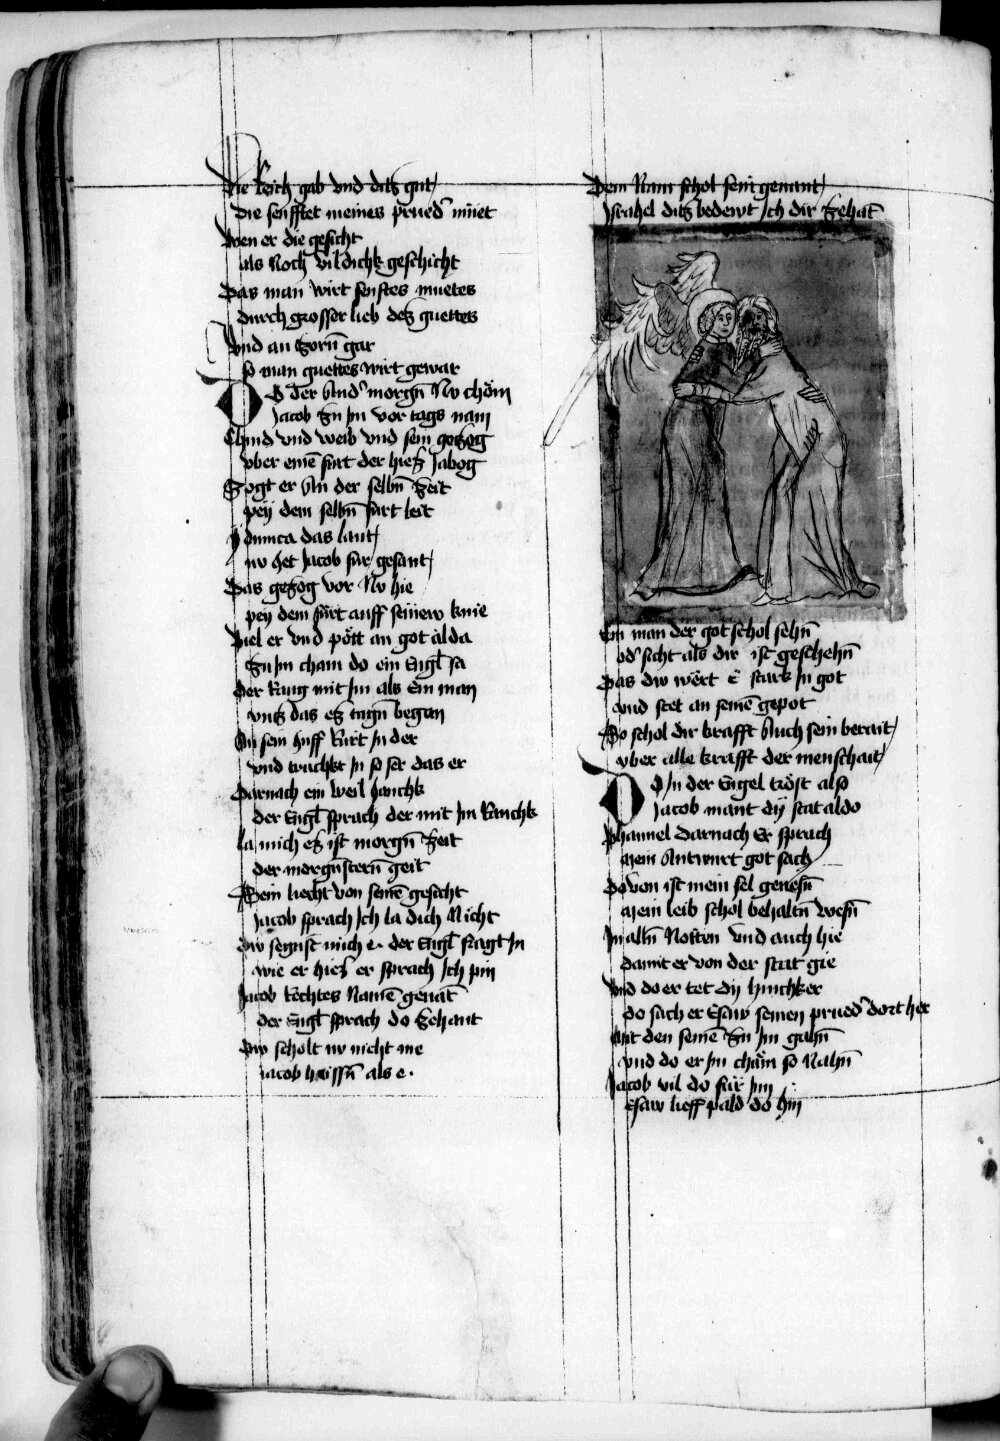 Die Reich gab vnd ditz gut
Die senfftet meines prued' muet
Wen er die gesicht
als Noch vil dichk geschicht
Das man wirt senftes muetes
durch grosser lieb des guettes
Vnd an zorn̄ gar
so man guettes wirt gewar
Do der And' morgn̄ Nv chöm
Jacob zu Jm vor tags nam
Chind vnd weib vnd sein gezog
vber eine furt der hiesz Jabog
Zogt er An der selbn̄ zeit
pey dem selbn̄ furt leit
das laut
nv het Jacob für gesant
Das gezog vor Nv hie
pey dem furt auff seinew knie
Viel er vnd pött an got alda
Zu Jm cham do ein Engl sa
Der Rang mit Jm als Ein man
vntz das ez tagn̄ began
An sein huff Rürt Jn der
vnd truchkt Jn so ser das er
Darnach ein weil hanchk
der Engl sprach der mit Jm Ranchk
la mich ez ist morgn̄ zeit
der morgnstern̄ geit
Sein liecht von seinē gesicht
Jacob sprach Jch la dich Nicht
Dw segnst mich e. der Engl fragt Jn
wie er hiesz er sprach Jch pin
Jacob Rechtes Namē genāt
der Engl sprach do zehant
Dw scholt nv nicht me
Jacob haissn̄ als e.
Dein Nam schol sein genant
Jsrahel ditz bedewt Jch dir zehāt
Ein man der got schol sehn̄
od' sicht als dir ist geschehn̄
Das dw wert E stark Jn got
vnd stet an seinē gepot
So schol dir krafft Auch sein berait
vber alle krafft der menschait
Do Jn der Engel tröst also
Jacob nant dy stat aldo
phanuel darnach Er sprach
mein Antwurt got sach
Do von ist mein sel genesn̄
mein leib schol behaltn̄ wesn̄
Jn alln̄ Nötten vnd auch hie
damit er von der stat gie
Vnd do er tet dy hinchker
do sach er Esaw seinen prued' dort her
Mit den seinē zu Jm gahn̄
vnd do er Jm chäm so Nahn̄
Jacob vil do für Jm
Esaw lieff pald do hin